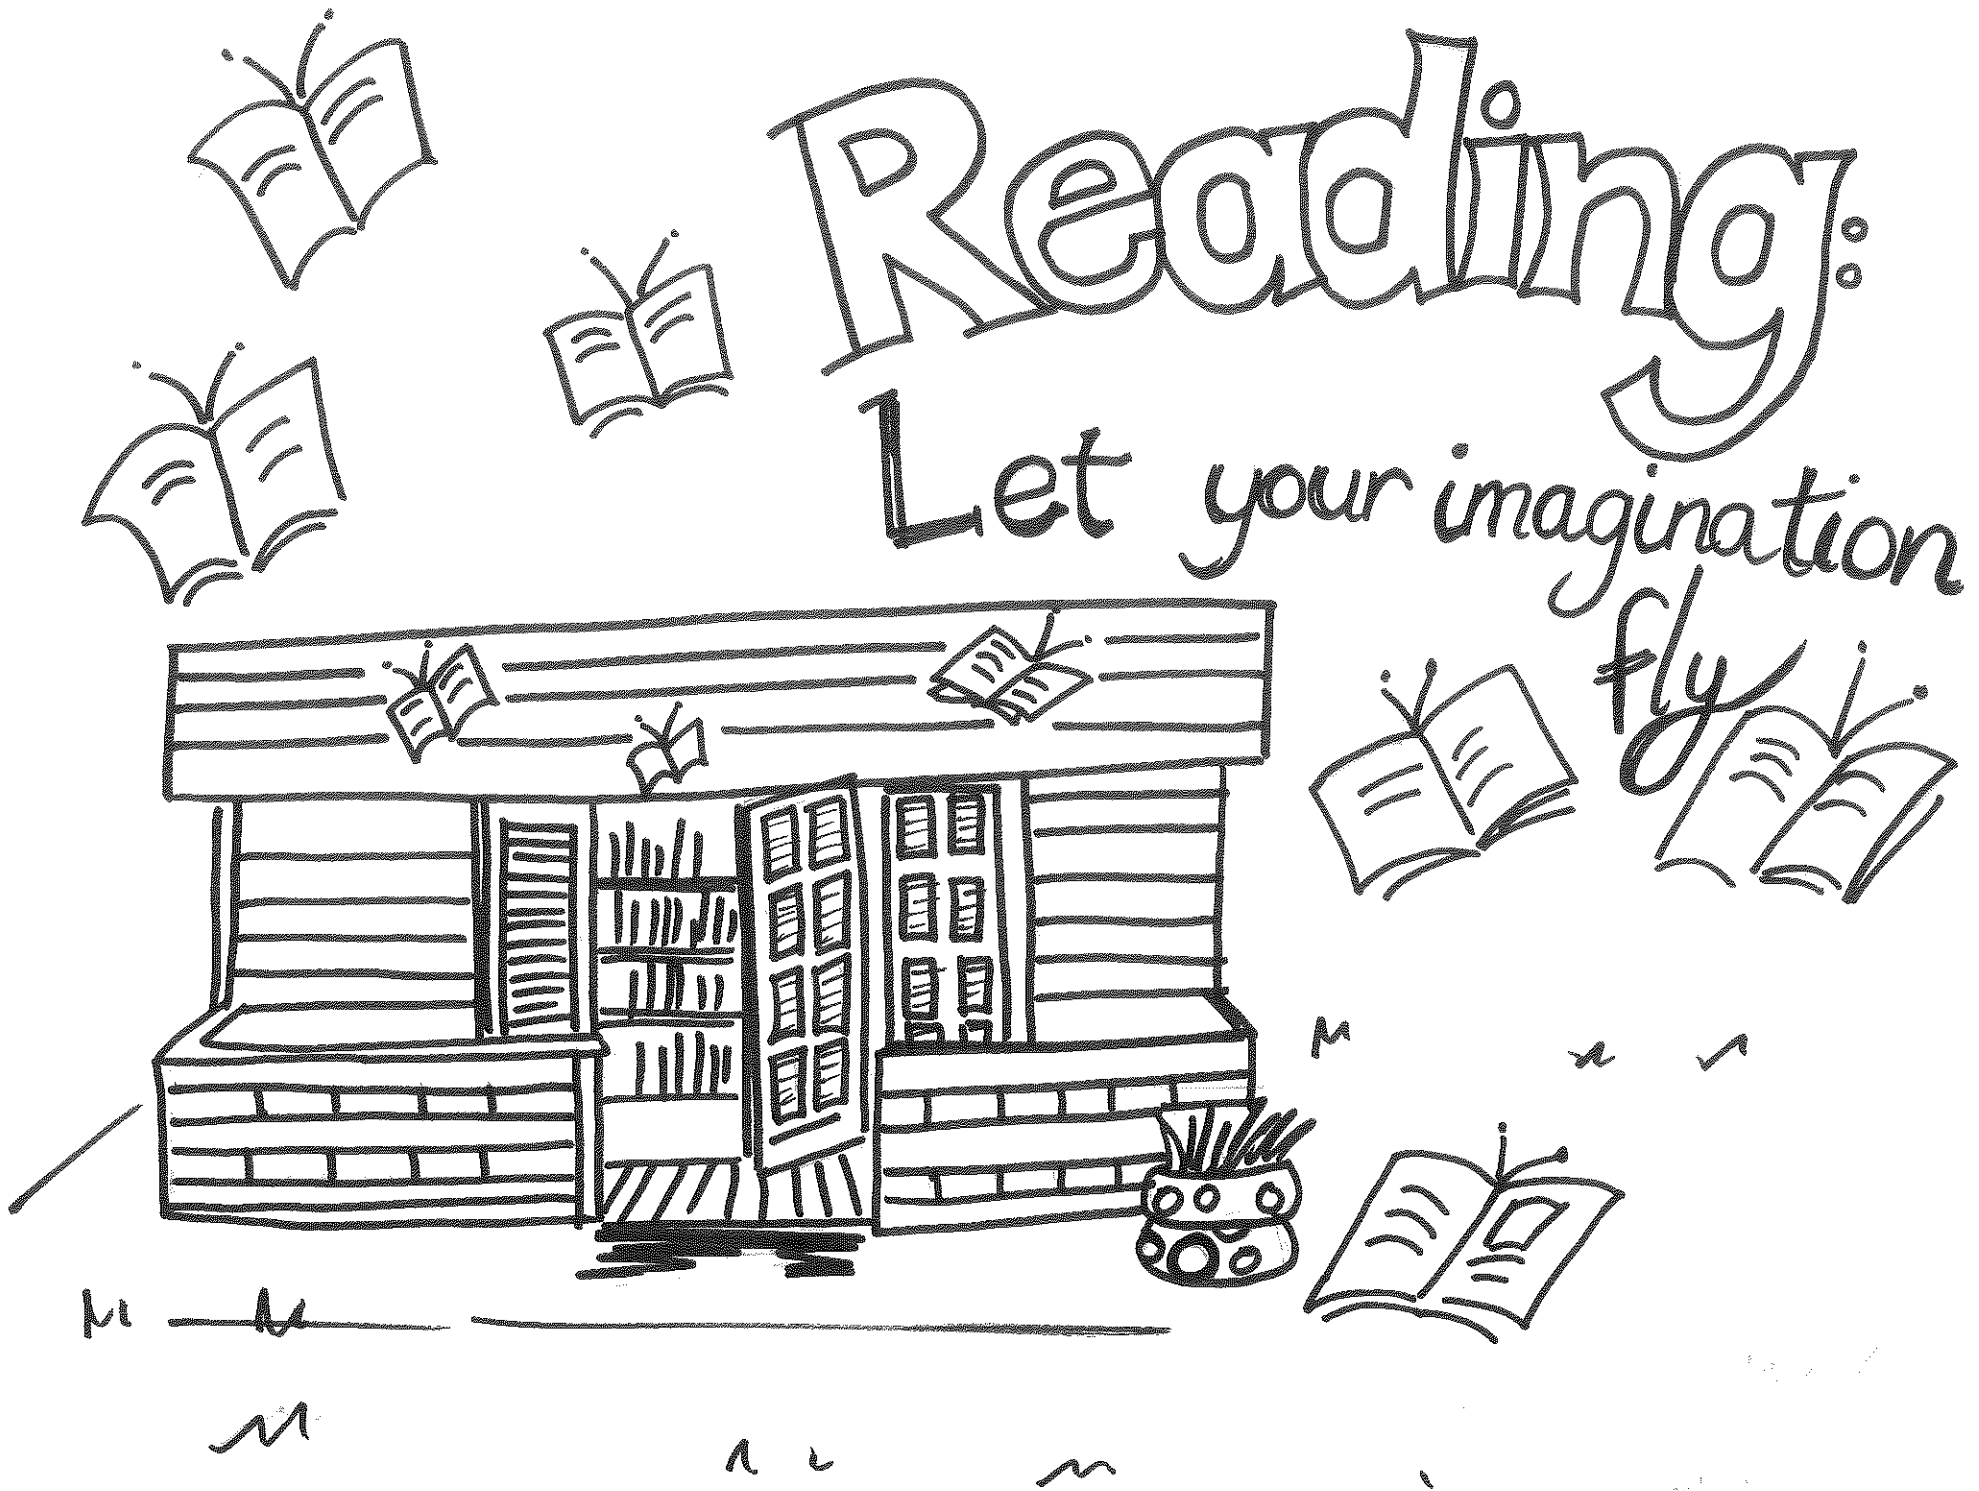 Reading:
Let your imagination
fly